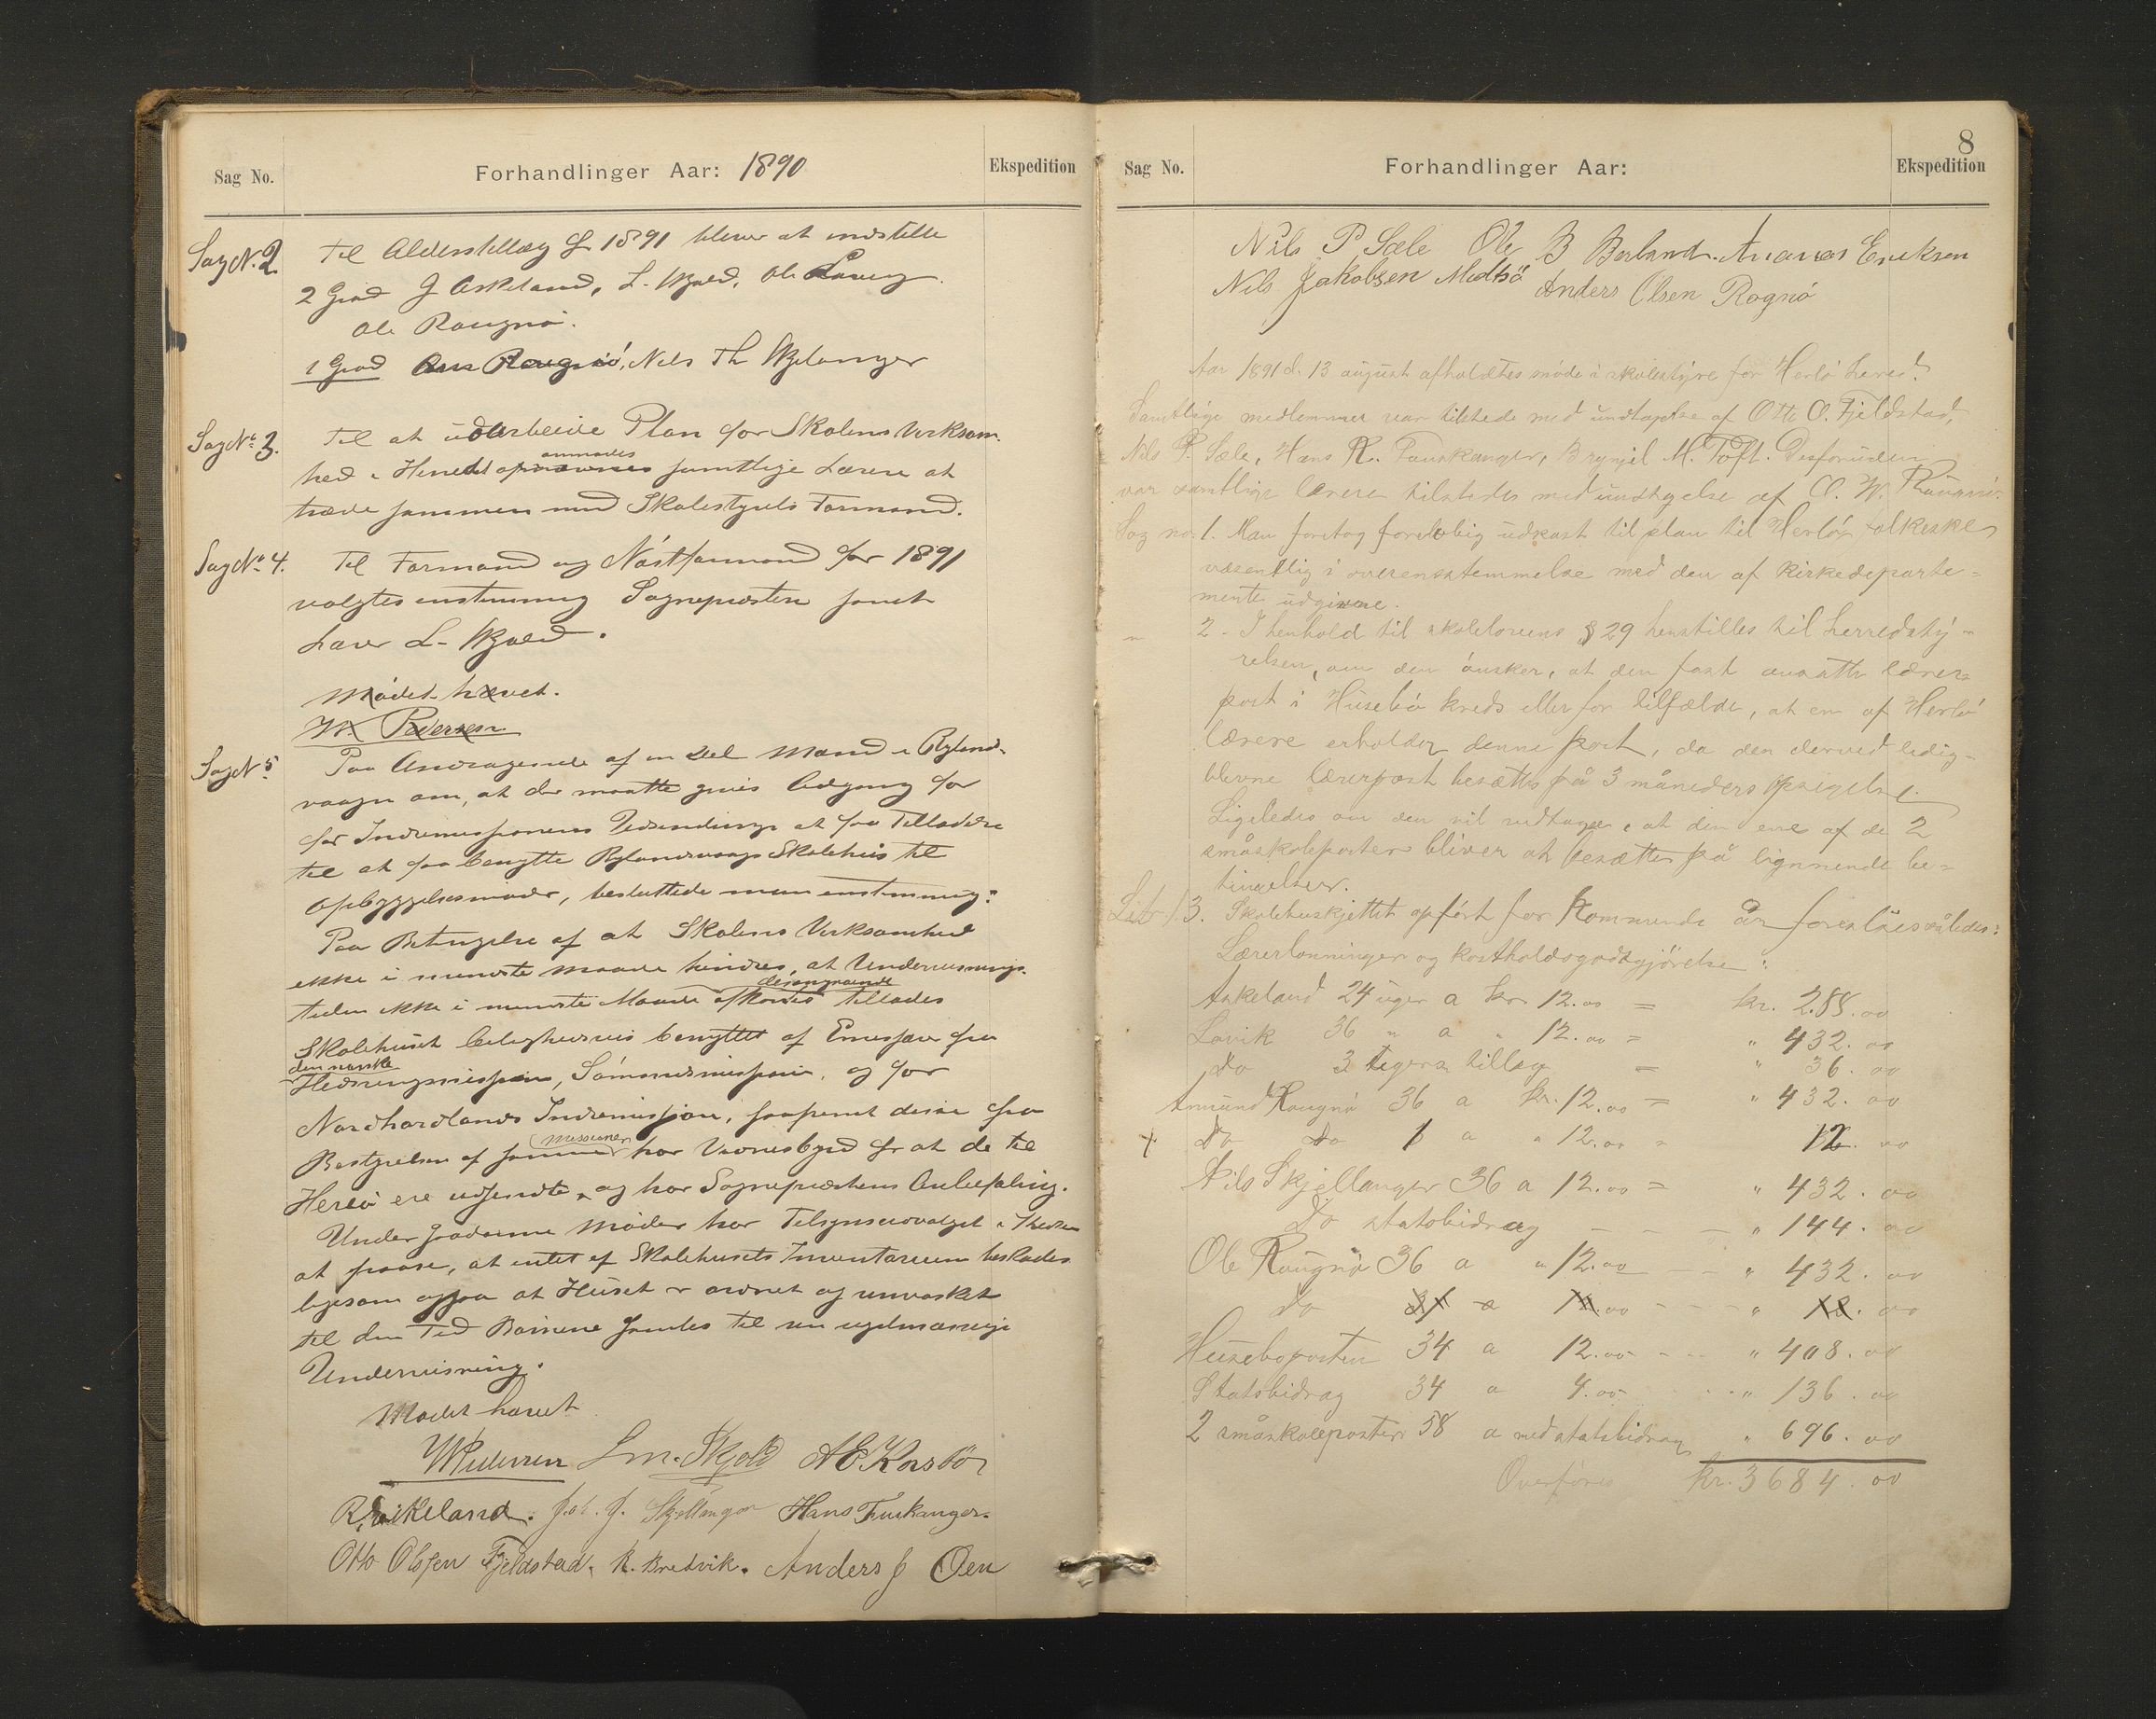 Sag No.
Forhandlinger Aar: 1890
Ekspedition
Sag N. 2. Til Alderstillæg for 1891 blever at indstille
2 Grad J Askeland, L. Skjold, Ole
Ole Raugnø.
1 Grad Raugnø, Nils Th Skjelanger
Sag No 3. Til at udarbeide Plan for Skolens Virksom-
hed i Herredet anmodes samtlige Lærere at
træde sammen med Skolestyrets Formand.
Sag No 4. Til Formand og Næstformand for 1891
valgtes enstemmig Sognepresten samt
Lærer L. Skjold.
Mødet hævet.
W. Pedersen
Sag No 5 Paa Andragende af en Del Mænd i Ryland-
vaagen om, at der maatte gives Adgang for
for Indremissionens Udsendinge at faa Tilladelse
til at faa benytte Rylandsvaags Skolehus til
Opbyggelsesmøder, besluttede man enstemmig:
Paa Betingelse af at Skolens Virksomhed
ikke i mindste Maade hindres, at Undervisnings-
tiden ikke i mindste Maade afkortes tillades
Skolehuset leilighedsvis benyttet af Emissær fra
den norske
Hedningmission, Sømandsmission, og for
Nordhordlands Indremission, saafremt disse fra
Bestyrelsen af samme missioner har Vidnesbyrd for at de til
Herlø ere udsendte, og har Sogneprestens Anbefaling.
Under saadanne Møder har Tilsynsudvalget i Kredsen
at paase, at intet af Skolehusets Inventarium beskades
ligesom ogsaa at Huset er ordnet og renvasket
til den Tid Børnene samles til sin regelmæssige
Undervisning.
Mødet hævet
W Pedersen L m. Skjold A E Rossø
R, Eikeland. Joh. J. Skjellanger Hans Fauskanger.
Otto Olssen Fjeldstad. R. Bredvik. Anders J Øen
8
Sag No.
Forhandlinger Aar:
Ekspedition
Nils P Sæle Ole B Børland. Ananias Eriksen
Nils Jakobsen Medhø Anders Olsen Rognø
Aar 1891 d. 13 august afholdtes møde i skolestyre for Herlø herred.
Samtlige medlemmer var tilstede med undtagelse af Otto O. Fjeldstad,
Nils P. Sæle, Hans R. Fauskanger, Brynjel M. Toft. Desforuden
var samtlige lærere tilstedes med undtagelse af O. W. Raugnø.
Sag no. 1. Man foretog foreløbig udkast til plan til Herlø folkeskole
væsentlig i overensstemmelse med den af kirkedeparte-
mentet udgivne.
" 2. I henhold til skolelovens § 29 henstilles til herredsty-
relsen, om den ønsker, at den fast ansatte lærer-
post i Husebø kreds eller for tilfælde, at en af Herlø
lærere erholder denne post, da den derved ledig-
blevne lærerpost besættes på 3 måneders opsigelse.
Ligeledes om den vil vedtage, at den ene af de 2
småskoleposter bliver at besætte på lignende be-
tingelser.
3. Skolebudskjettet opført for kommende år foreslåes således:
Lærerlønninger og kostholdsgodtgjørelse:
Askeland 24 uger a kr 12.00 = kr. 288.00
Løvik 36 " a " 12.00 = " 432.00
Do 3 ugers tillæg = " 36.00
Amund Raugnø 36 a kr. 12.00 = " 432.00
+ Do Do 1 a " 12.00 = 12.00
Nils Skjellanger 36 a 12.00 = " 432.00
Do statsbidrag - - - " 144.00
Ole Raugnø 36 a " 12.00 - - " 432.00
Do a 12.00 - - - " 12.00
Huseboposten 34 a 12.00 - - " 408.00
Statsbidrag 34 a 4.00 - - " 136.00
2 småskoleposter 58 a med statsbidrag " 696.00
Overføres kr. 3684.00